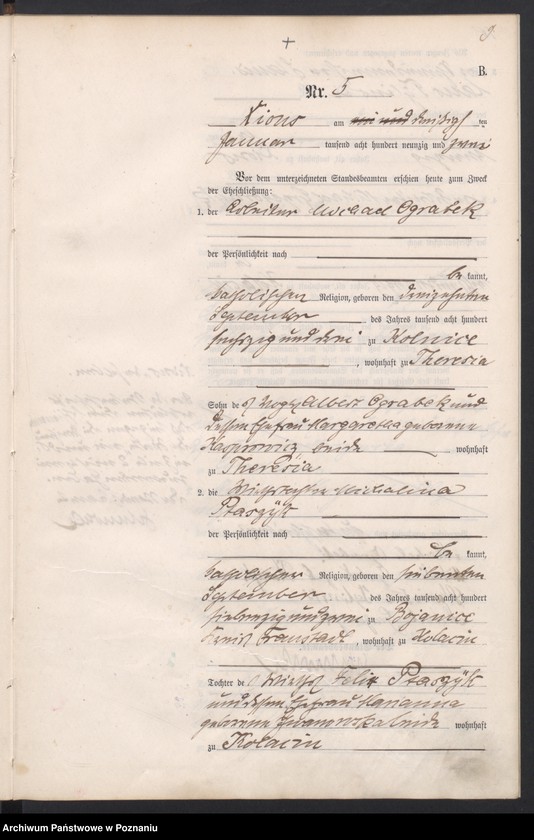 9.
B.
Nr. 5
Xions am ein und dreißigsten
Januar tausend acht hundert neunzig und zwei
Vor dem unterzeichneten Standesbeamten erschien heute zum Zweck
der Eheschließung:
1. der Michael Ograbek
der Persönlichkeit nach
be kannt,
katholischer Religion, geboren den dreizehnten
September des Jahres tausend acht hundert
sechszig und drei zu Kolnice
, wohnhaft zu Theresia
Sohn des Vogt Albert Ograbek und
dessen Ehefrau Margaretha geborene
Kasprowicz, beide wohnhaft
zu Theresia
2. die Wirthstochter Michalina
Ptaszyk
der Persönlichkeit nach
be kannt,
katholischer Religion, geboren den siebenten
September des Jahres tausend acht hundert
siebenzig und zwei zu Bojanice
Kreis Fraustadt, wohnhaft zu Kolacin
Tochter des Wirths Felix Ptaszyk
und dessen Ehefrau Marianna
geborene beide wohnhaft
zu Kolacin
Archiwum Państwowe w Poznaniu